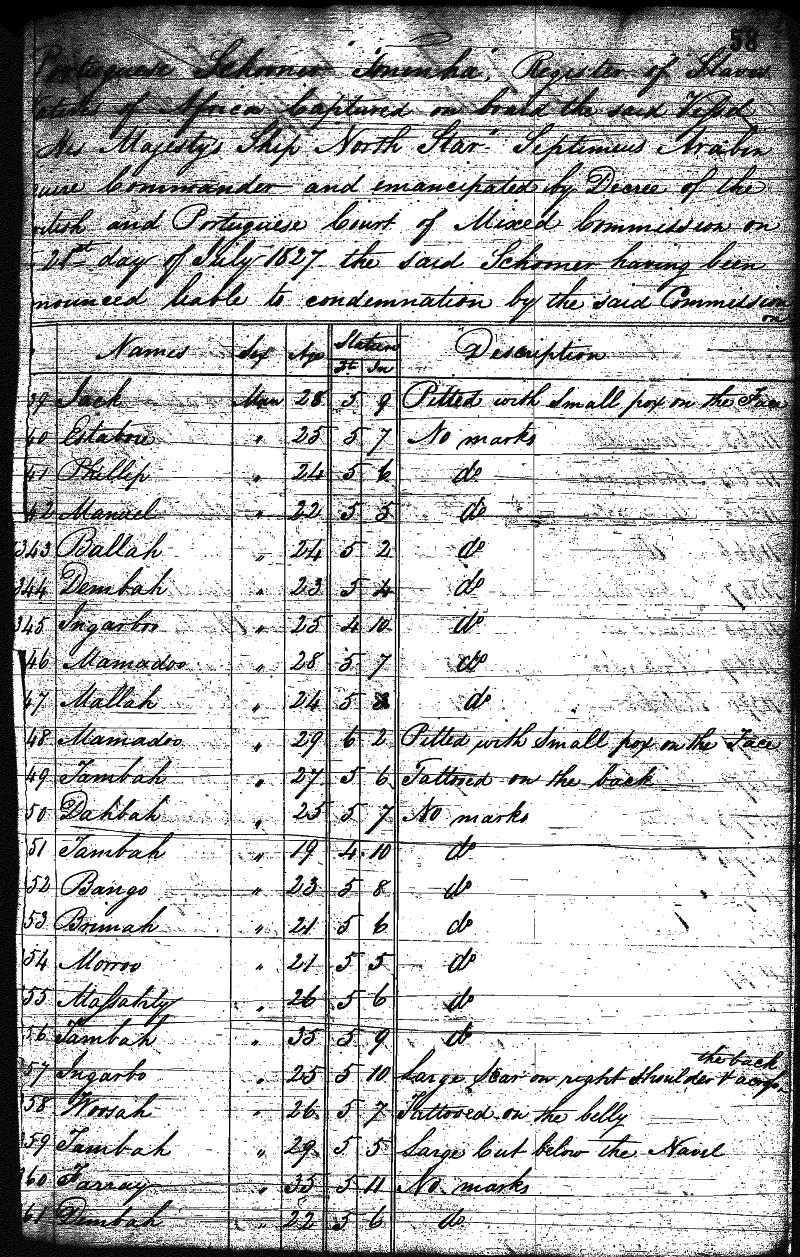 58
Portuguese Schooner "Toninha", Register of Slaves
Natives of Africa Captured on board the said Vessel
His Majestys Ship North Star" Septimus Arabin
quire Commander and emancipated by Decree of the
ritish and Portuguese Court of Mixed Commission on
21st day of July 1827 the said Schooner having been
nounced liable to condemnation by the said Commission
on
Names Sex Age Stature Description
Ft In
39 Jack Man 28 5 9 Pitted with Small pox on the Face
40 25 5 7 No marks
41 Phillip " 24 5 6 do
42 Manuel " 22 5 5 do
343 Ballah " 24 5 2 do
344 Dembah " 23 5 4 do
345 Ingarboo " 25 4 10 do
46 Mamadoo " 28 5 7 do
47 Mallah " 24 5 do
48 Mamadoo " 29 6 2 Pitted with Small pox on the Face
49 Tambah " 27 5 6 Tattooed on the back
50 Dahbah " 25 5 7 No marks
51 Tambah " 19 4 10 do
52 Bango " 23 5 8 do
53 Brimah " 21 5 6 do
54 Morroo " 21 5 5 do
55 " 26 5 6 do
56 Tambah " 35 5 9 do
the back
57 Ingarbo " 25 5 10 Large Scar on right shoulder & across
58 Woosah " 26 5 7 Tattooed on the belly
59 Tambah " 29 5 5 Large Cut below the Navel
60 Farray " 35 5 11 No marks
61 Dembah " 22 5 6 do